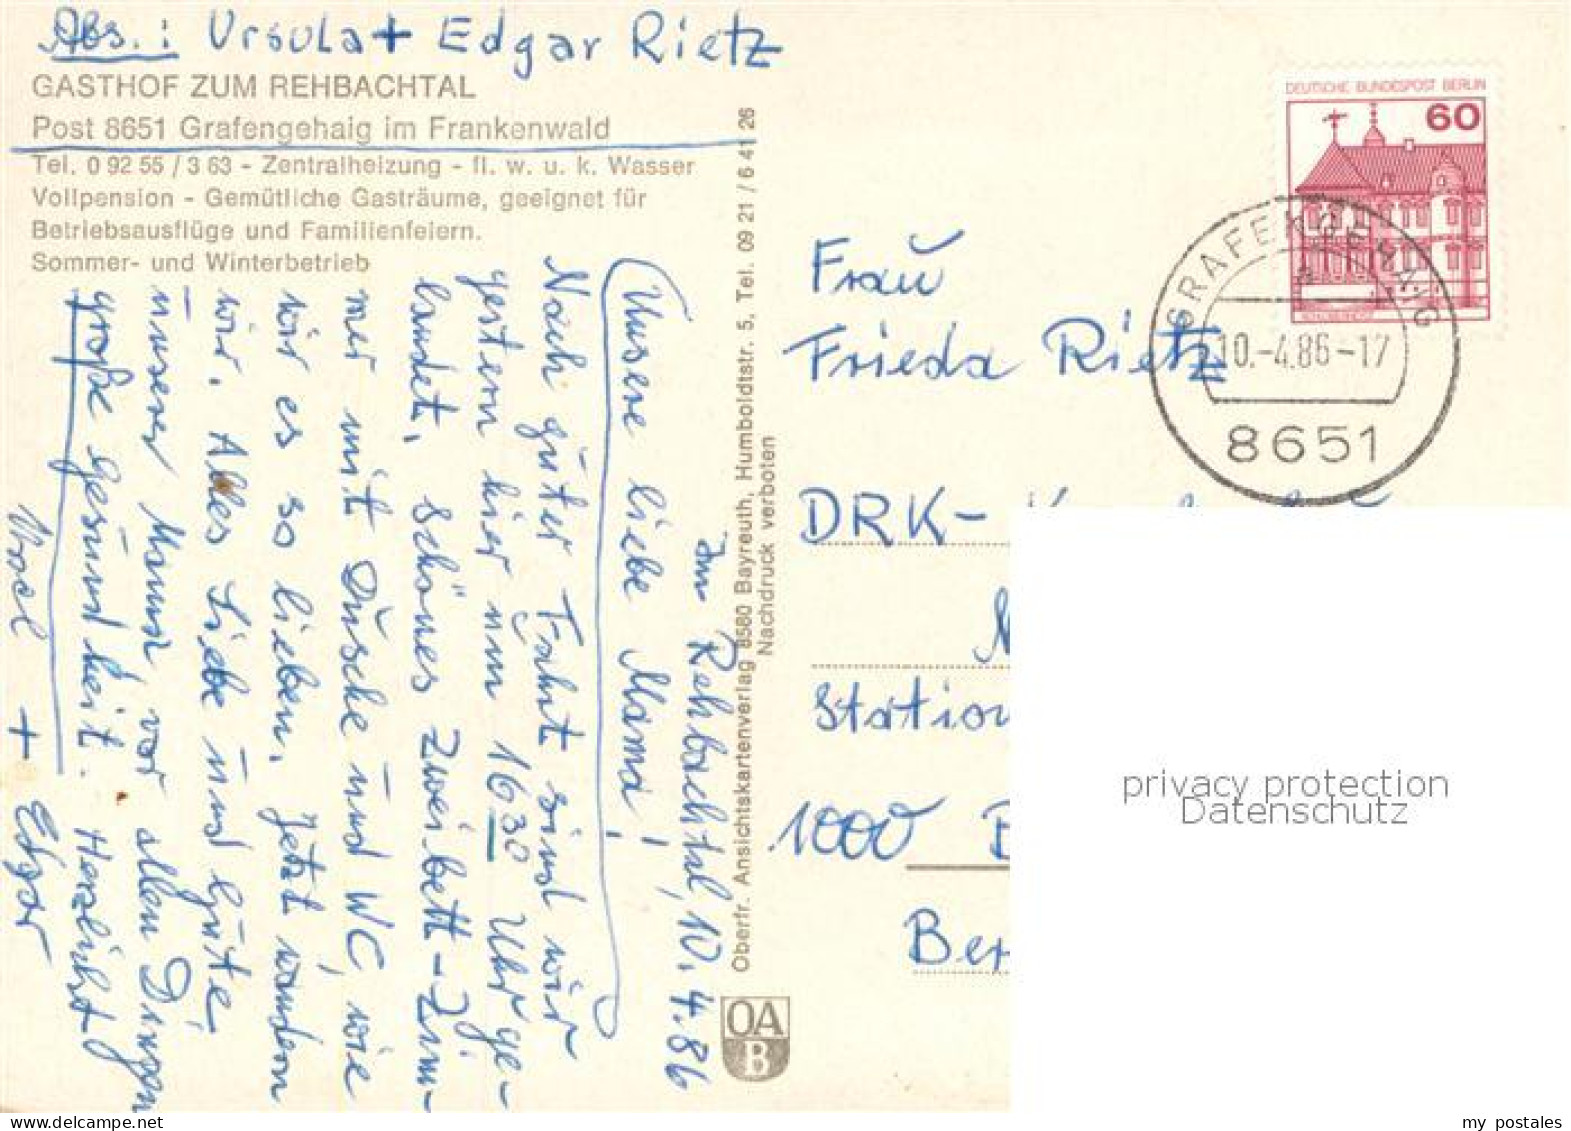 Abs.: Ursula + Edgar Rietz
GASTHOF ZUM REHBACHTAL
Post 8651 Grafengehaig im Frankenwald
Tel. 0 92 55 / 3 63 - Zentralheizung - fl. w. u. k. Wasser
Vollpension - Gemütliche Gasträume, geeignet für
Betriebsausflüge und Familienfeiern.
Sommer- und Winterbetrieb
Im Rehbachtal, 10.4.86
Unsere liebe Mama!
Nach guter Fahrt sind wir
gestern hier um 16³⁰ Uhr ge-
landet. Schönes Zweibett-Zim-
mer mit Dusche und WC, wie
wir es so lieben. Jetzt wandern
wir. Alles Liebe und Gute,
unserer Mama vor allen Dingen
große Gesundheit. Herzlichst
+ Edgar
Oberfr. Ansichtskartenverlag 8580 Bayreuth, Humboldtstr. 5, Tel. 09 21 / 6 41 26
Nachdruck verboten
OA
B
DEUTSCHE BUNDESPOST BERLIN
60
GRAFENGEHAIG
a
10.-4.86-17
8651
Frau
Frieda Rietz
DRK-
Station
1000
Ber
privacy protection
Datenschutz
my postales
www.delcampe.net